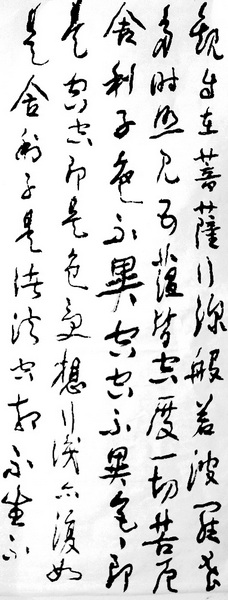 觀自在菩薩行深般若波羅蜜
多時照見五蘊皆空度一切苦厄
舍利子色不異空空不異色々即
是空空即是色受想行識亦復如
是舍利子是諸法空相不生不